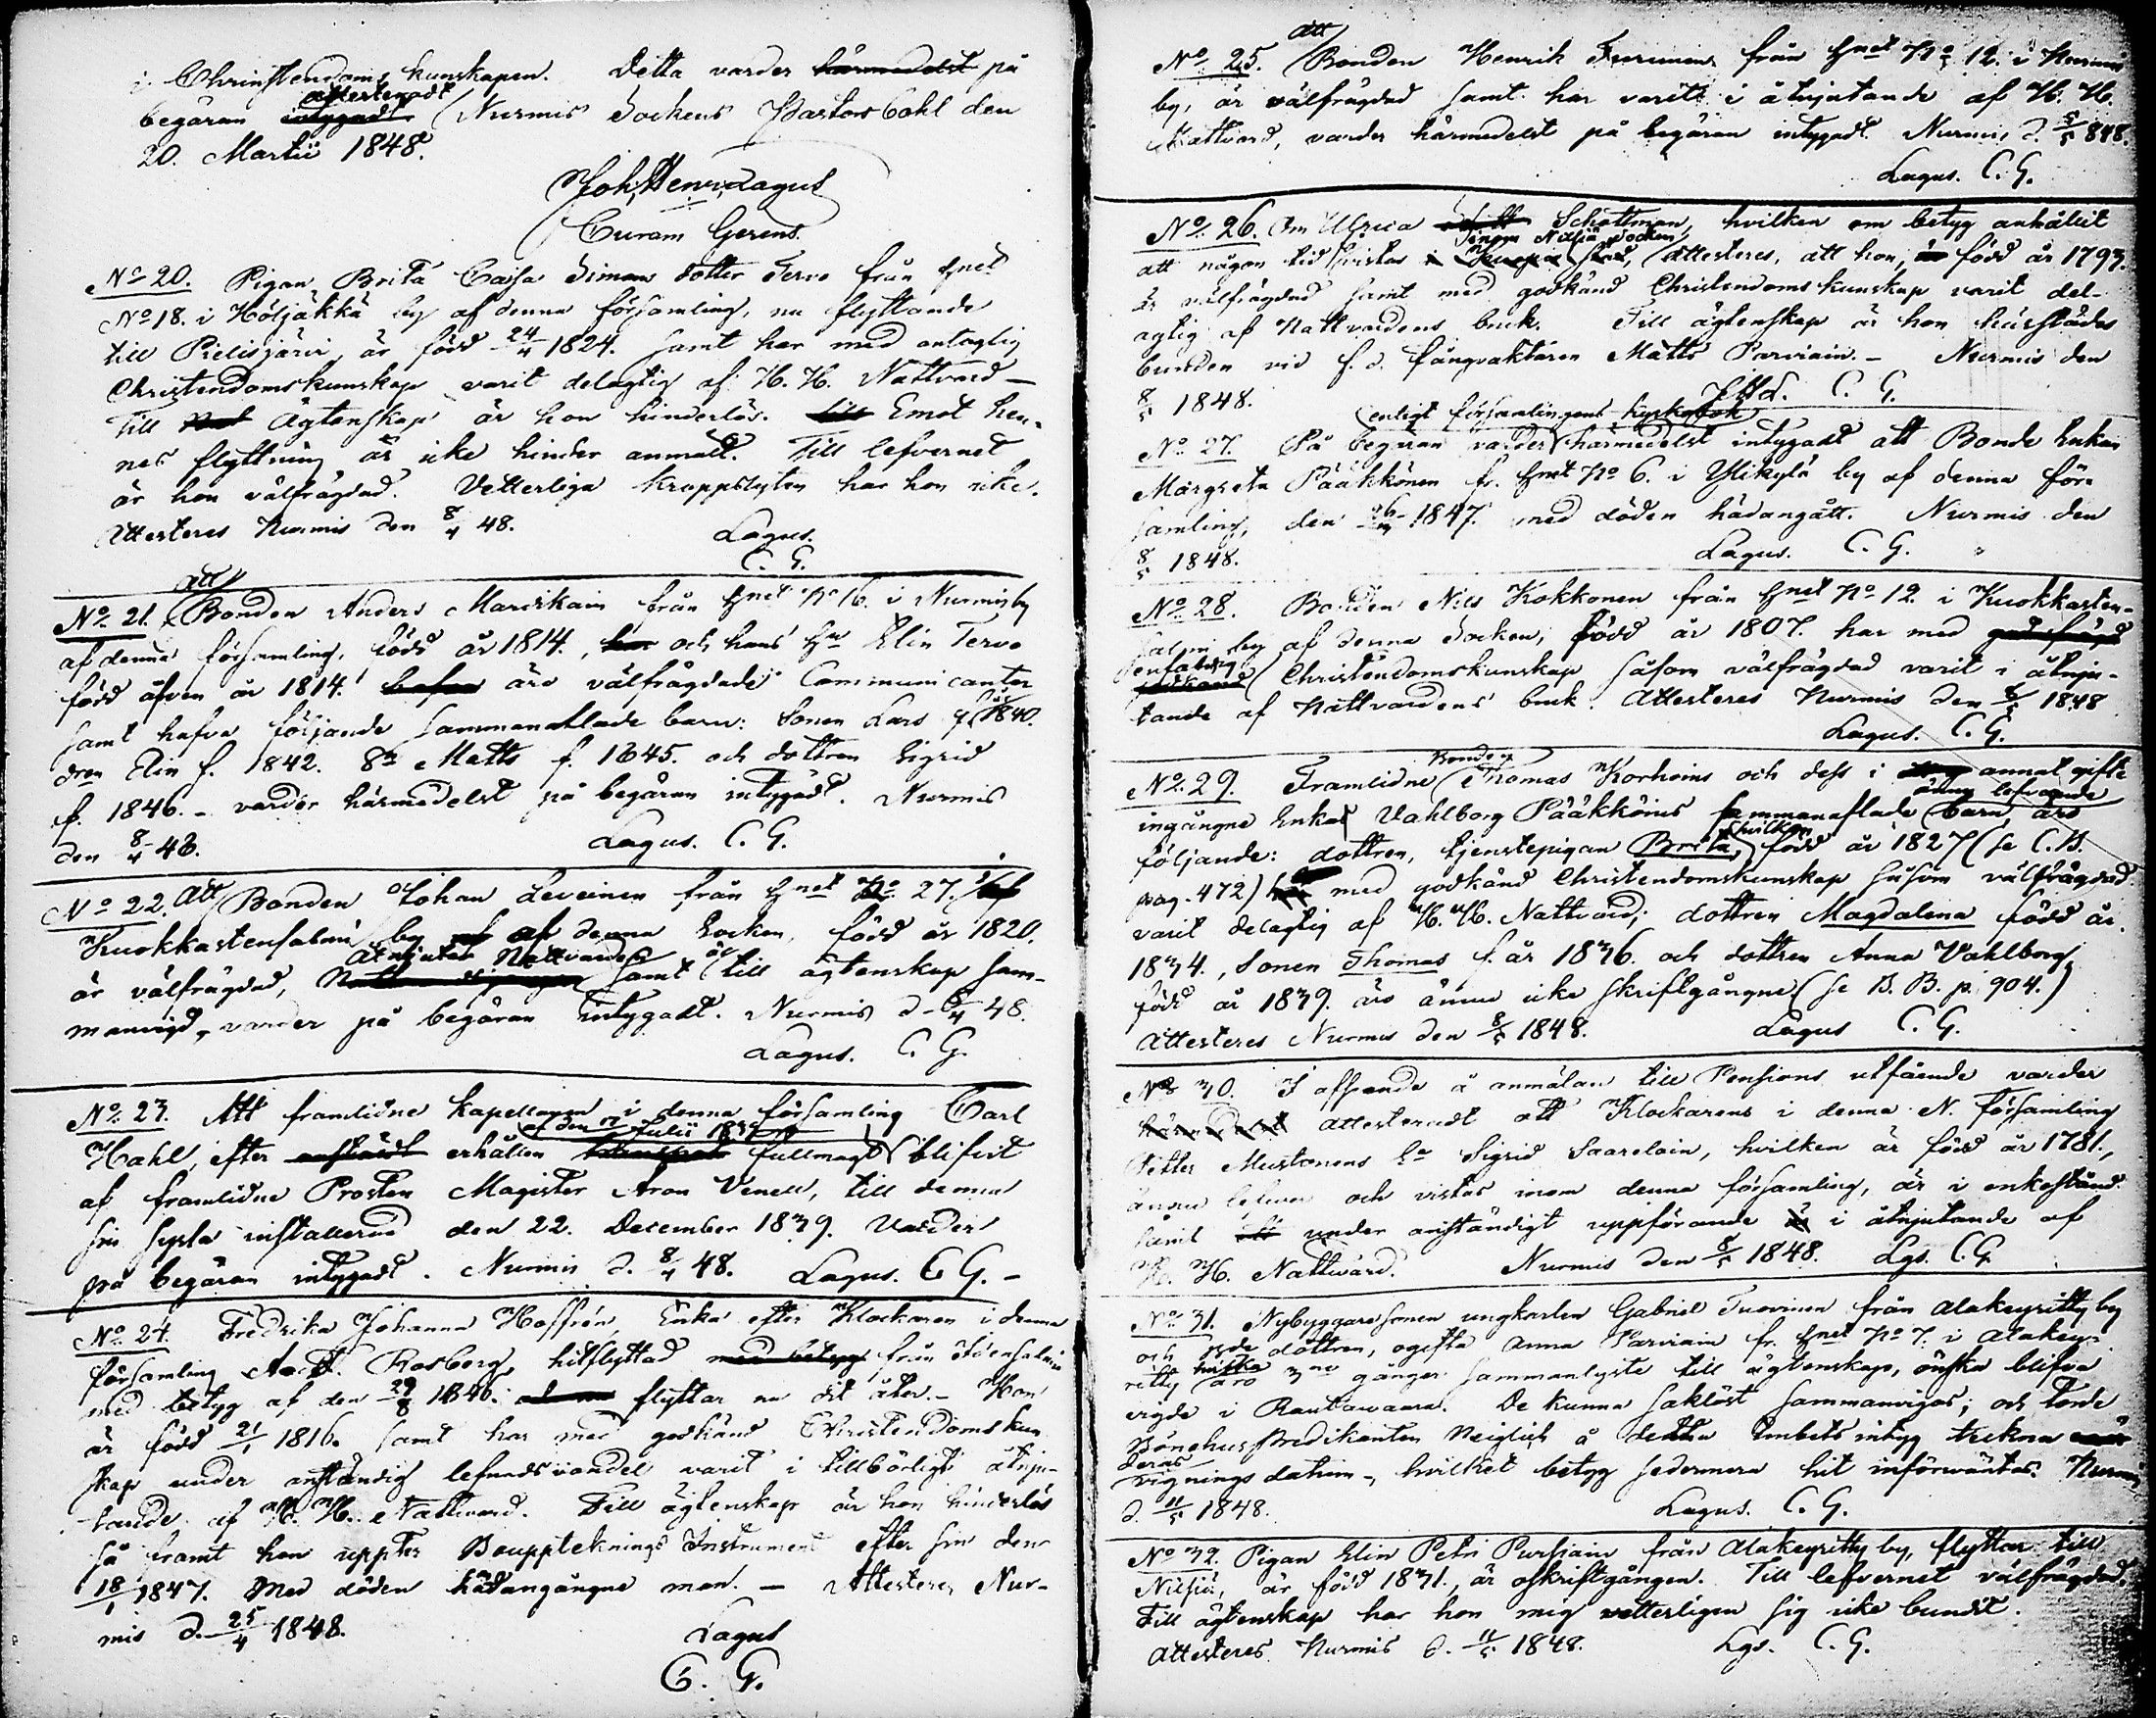 i Christendoms kunskapen. Detta varder härmedelst på
attesteradt
begäran intygadt Nurmis Sockens Pastors Cahl den
20. Martii 1848.
Joh. Henr. Lagus
Curam Gerens.
No 20. Pigan Brita Caisa Simons dotter Tervo från Hnet
No 18. i Höljäkkä by af denna församling, nu flyttande
till Pielisjärvi, är född 24/4 1824. samt har med antaglig
Christendomskunskap varit delagtig af H. H. Nattvard —
Till ägtenskap är hon hinderlös. till Emot hen-
nes flyttning är icke hinder anmält. Till lefvernet
är hon välfrägdad. Vetterliga kroppslyten har hon icke.
Attesteres Nurmis den 8/4 48.
Lagus.
C. G.
att
No 21. Bonden Anders Mardikain från Hnet No 16. i Nurmis by
af denna församling, född år 1814., har och hans Hu Elin Tervo
född äfven år 1814. hafva äro välfrägdade Communicanter
samt hafva följande sammanaflade barn: Sonen Lars f. år 1840.
dren Elin f. 1842. Sn Matts f. 1845. och dottren Sigrid
f. 1846. – varder härmedelst på begäran intygadt. Nurmis
den 8/4 48. Lagus. C. G.
No 22. Att Bonden Johan Leveinen från Hnet No 27. i
Kuokkastensalmi by af af denna Socken, född år 1820.
åtnjutes Nattvarden är
är välfrägdad, samt till ägtenskap sam-
manvigd, varder på begäran intygadt. Nurmis d. 8/4 48.
Lagus. C. G.
No 23. Att framlidne kapellanen i denna församling Carl
af den 17 Julii 1839
Hahl, efter erhållen fullmagt blifvit
af framlidne Prosten Magister Aron Venell, till denna
sin sysla installerad den 22. December 1839. Varder
på begäran intygadt. Nurmis d. 8/4 48. Lagus. C G. –
No 24. Fredrika Johanna Hoffrén, Enka efter Klockaren i denna
församling Rosberg, hitflyttad med betyg från
med betyg af den 29/8 1846. flyttar nu dit åter. – Hon
är född 21/1 1816. samt har med godkänd Christendoms kun
skap under anständig lefnadsvandel varit i tillbörligt åtnju-
tande af H. H. Nattvard. Till ägtenskap är hon hinderlös
så framt hon uppter Bouppteknings Instrument efter sin den
18/1 1847. Med döden hädangångne man. — Attesteres Nur-
mis d. 25/4 1848.
Lagus
C. G.
att
No 25. Bonden Henrik Turunen från Hnet No 12. i Nurmis
by, är välfrägdad samt har varit i åtnjutande af H. H.
Nattvard, varder härmedelst på begäran intygadt. Nurmis d. 5/5 848.
Lagus. C. G.
No 26. Om Ulrica Schöttman, hvilken om betyg anhållit
inom Nilsiä Socken
att någon tid vistas i Kuopio stad, attesteres, att hon, är född år 1793.
är välfrägdad samt med godkänd Christendoms kunskap varit del-
agtig af Nattvardens bruk. Till ägtenskap är hon härstädes
bunden vid f. d. fångvaktaren Matts Parviain. – Nurmis den
8/5 1848. C. G.
enligt församlingens kyrkobok
No 27. På begäran varder härmedelst intygadt att Bonde Enkan
Margreta Pääkkönen fr. Hnet No 6. i Ylikylä by af denna för-
samling, den 1847. med döden hädangått. Nurmis den
8/5 1848. Lagus. C. G.
No 28. Bonden Nils Kokkonen från Hnet No 12 i Kuokkasten-
salmi by af denna Socken, född år 1807. har med
enfaldig
godkänd Christendomskunskap såsom välfrägdad varit i åtnju-
tande af Nattvardens bruk. Attesteres Nurmis den 8/5 1848
Lagus. C. G.
Bonden
No 29. Framlidne Thomas Korhoins och dess i annat gifte
ännu lefvande
ingångne Enkas Vahlborg Pääkköins sammanaflade barn äro
hvilken
följande: dottren, tjenstepigan Brita, född år 1827 (se C.B.
pag. 472) har med godkänd Christendomskunskap såsom välfrägdad
varit delagtig af H. H. Nattvard; dottren Magdalena född år
1834., Sonen Thomas f. år 1836. och dottren Anna Vahlborg
född år 1839. äro ännu icke skriftgångne (se B. B. p. 904.)
attesteres Nurmis den 8/5 1848. Lagus C. G.
No 30. I afseende å anmälan till Pensions utfående varder
härmedelst attesteradt att Klockarens i denna N. församling
Petter Mustonens Ea Sigrid Saarelain, hvilken är född år 1781.,
ännu lefver och vistas inom denna församling, är i enkestånd
samt under anständigt uppförande är i åtnjutande af
H. H. Nattvard. Nurmis den 8/5 1848. Lgs. C. G
No 31. Nybyggaresonen ungkarlen Gabriel Tuovinen från Alakeyritty by
och dottren, ogifta Anna Parviain fr. Hnet No 7. i Alakey-
hvilka
ritty äro 3ne gånger sammanlyste till ägtenskap, önska blifva
vigde i Rautawaara. De kunna saklöst sammanvigas; och torde
Bönehus Predikanten Neiglick å detta Embets intyg tekna
deras
vignings datum –, hvilket betyg sedermera hit införväntas. Nurmis
d. 11/5 1848. Lagus. C. G.
No 32. Pigan Elin Petri Pursiain från Alakeyritty by, flyttar till
Nilsiä, är född 1831., är oskriftgången. Till lefvernet välfrägdad.
Till ägtenskap har hon mig vetterligen sig icke bundit.
Attesteres Nurmis d. 11/5 1848. Lgs. C. G.